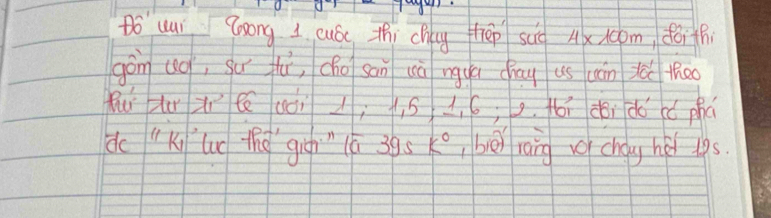 Đố vui : Trong 1 cuộc thi chạy tiếp sức 4 x 100m, đội thi
gồm voi, sư tử, chó săn và ngựa chạy vs vận tốc theo
thứ tự tỉ lệ với 1 ; 1,5 ; 1,6 ; 2. Hỏi đội đó có phá
đc "kỉ lục thế giới" là 39s ko, biết rằng voi chạy hết 12s.